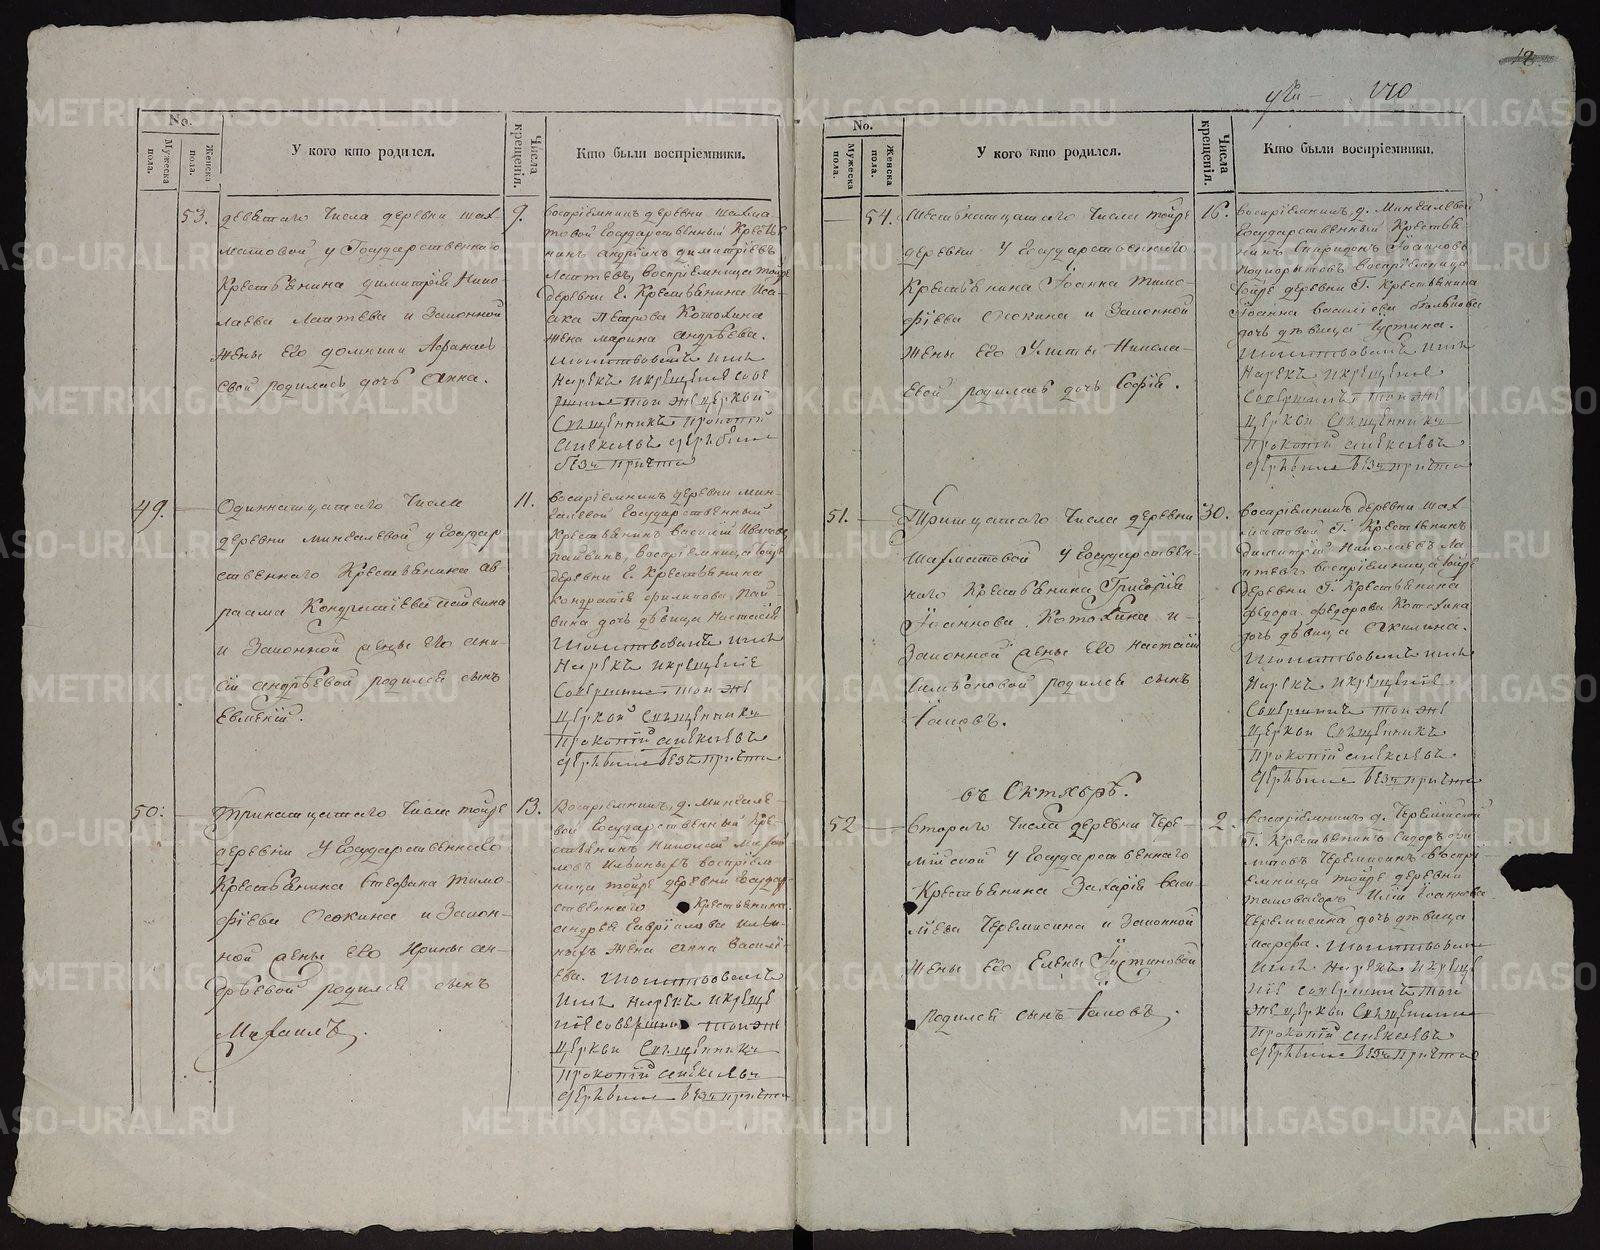 No.
Мужеска пола.
Женска пола.
У кого кто родился.
Числа крещенія.
Кто были воспріемники.
53.
девятаго Числа деревни шах-
матовой у Государственнаго
Крестьянина димитрія Нико-
лаева Лаптева и Законной
жены его домники Афанась
евой родилась дочь Анна.
9.
воспріемникъ деревни шахма-
товой Государственный Крестья
нинъ андріанъ димитріевъ
Лаптевъ, воспріемница тойже
деревни Г. Крестьянина Иса-
ака Петрова Котохина
жена марина андреева.
Молитвовалъ имя
Нарекъ икрещеніе сове
ршилъ той же церкви
Священникъ Прокопій
Алексѣевъ
безъ причта
49.
Одиннатцатаго Числа
деревни мингалевой у Государ
ственнаго Крестьянина ав
раама Кондратіева Пайвина
и Законной жены его ани-
сіи андреевой родился сынъ
Евменій.
11.
воспріемникъ деревни мин-
галевой Государственный
Крестьянинъ василій Иванов
Пайвинъ, воспріемница тойже
деревни Г. Крестьянина
кондратія филипова Пай
вина дочь дѣвица Настасія
Молитвовалъ имя
Нарекъ икрещеніе
Совершилъ той же
церкви Священникъ
Прокопій Алексѣевъ
безъ причта
50.
Тринатцатаго Числа тойже
деревни У Государственнаго
Крестьянина Стефана Тимо-
фіева Осокина и Закон-
ной жены его Ирины ан-
дреевой родился сынъ
Михаилъ.
13.
Воспріемникъ, д. Мингале
вой Государственный Кре-
стьянинъ Николай
воспріем
ница тойже деревни Государ
ственнаго Крестьянина
андрея Гавріилова
жена анна васили-
ева. Молитвовалъ
имя нарекъ икреще
ніе совершилъ той же
церкви Священникъ
Прокопій Алексѣевъ
безъ причта
18.
170
No.
Мужеска пола.
Женска пола.
У кого кто родился.
Числа крещенія.
Кто были воспріемники.
54.
Шестьнатцатаго Числа тойже
деревни У Государственнаго
Крестьянина Іоанна Тимо-
фіева Осокина и Законной
жены его Улиты Никола-
евой родилась дочь Софія.
16.
воспріемникъ, д. Мингалевой
Государственный Крестья
нинъ Спиридонъ Іоанновъ
воспріемница
тойже деревни Г. Крестьянина
Іоанна василіева
дочь дѣвица Іустина.
Молитвовалъ имя
Нарекъ икрещеніе
Совершилъ той же
церкви Священникъ
Прокопій Алексѣевъ
безъ причта
51.
Тритцатаго Числа деревни
Шахматовой У Государствен-
наго Крестьянина Григорія
Іоаннова Котохина и
Законной жены его Настасіи
Симеоновой родился сынъ
Іаковъ.
30.
воспріемникъ деревни шах
матовой Г. Крестьянинъ
Димитрій Николаевъ Ла-
птевъ воспріемница тойже
деревни Г. Крестьянина
федора федорова Котохина
дочь дѣвица акилина.
Молитвовалъ имя
Нарекъ икрещеніе
Совершилъ той же
церкви Священникъ
Прокопій Алексѣевъ
безъ причта
въ Октябрѣ.
52
втораго Числа деревни Чере-
мисской У Государственнаго
Крестьянина Захарія васи-
ліева Черемисина и Законной
жены его Елены Іустиновой
родился сынъ Іаковъ.
2.
воспріемникъ д. Черемисской
Г. Крестьянинъ Сидоръ фи
липовъ Черемисинъ воспрі-
емница тойже деревни
Іоаннова
Черемисина дочь дѣвица
Молитвовалъ
имя Нарекъ икреще
ніе совершилъ той
же церкви Священникъ
Прокопій Алексѣевъ
безъ причта
METRIKI.GASO-URAL.RU